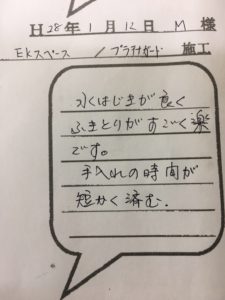 H28年1月12日 M 様
EKスペース / プラチナガード 施工
水はじきが良く
ふきとりがすごく楽
です。
手入れの時間が
短かく済む.